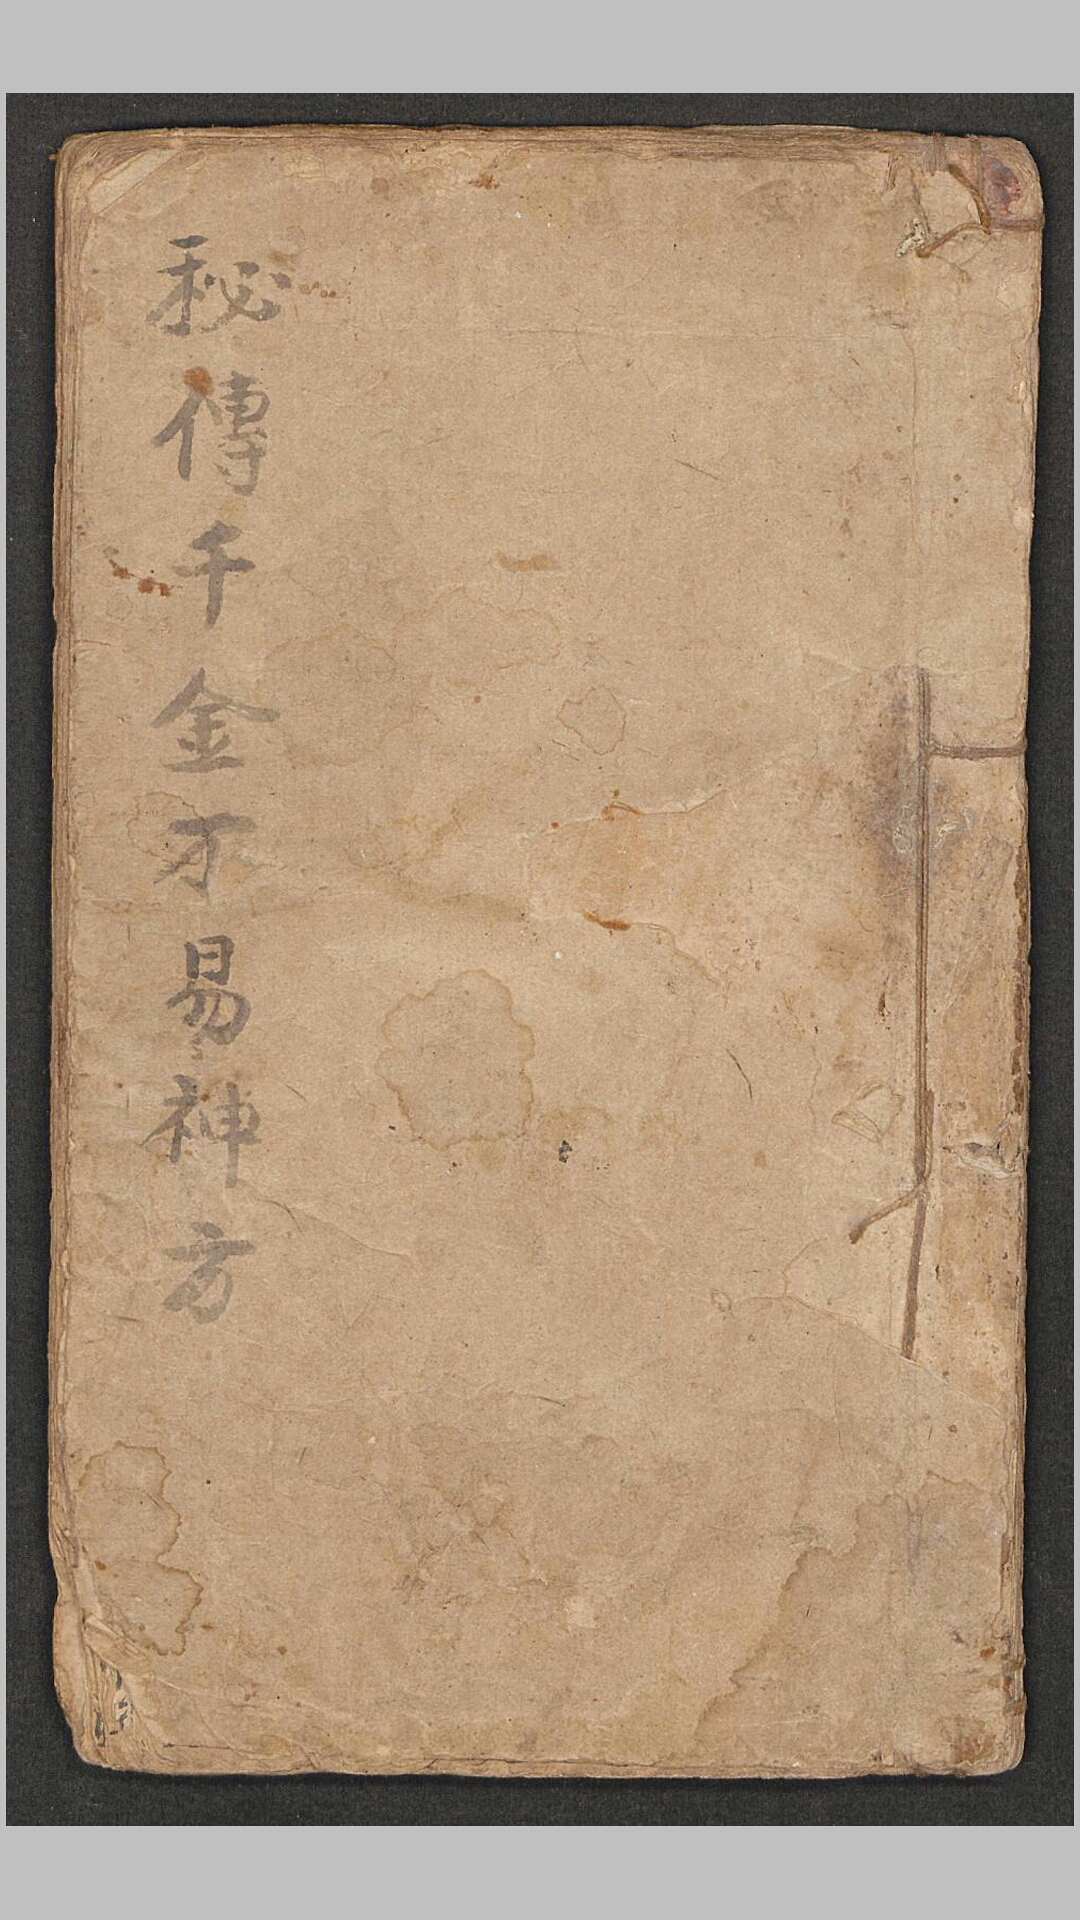 秘傳千金不易神方